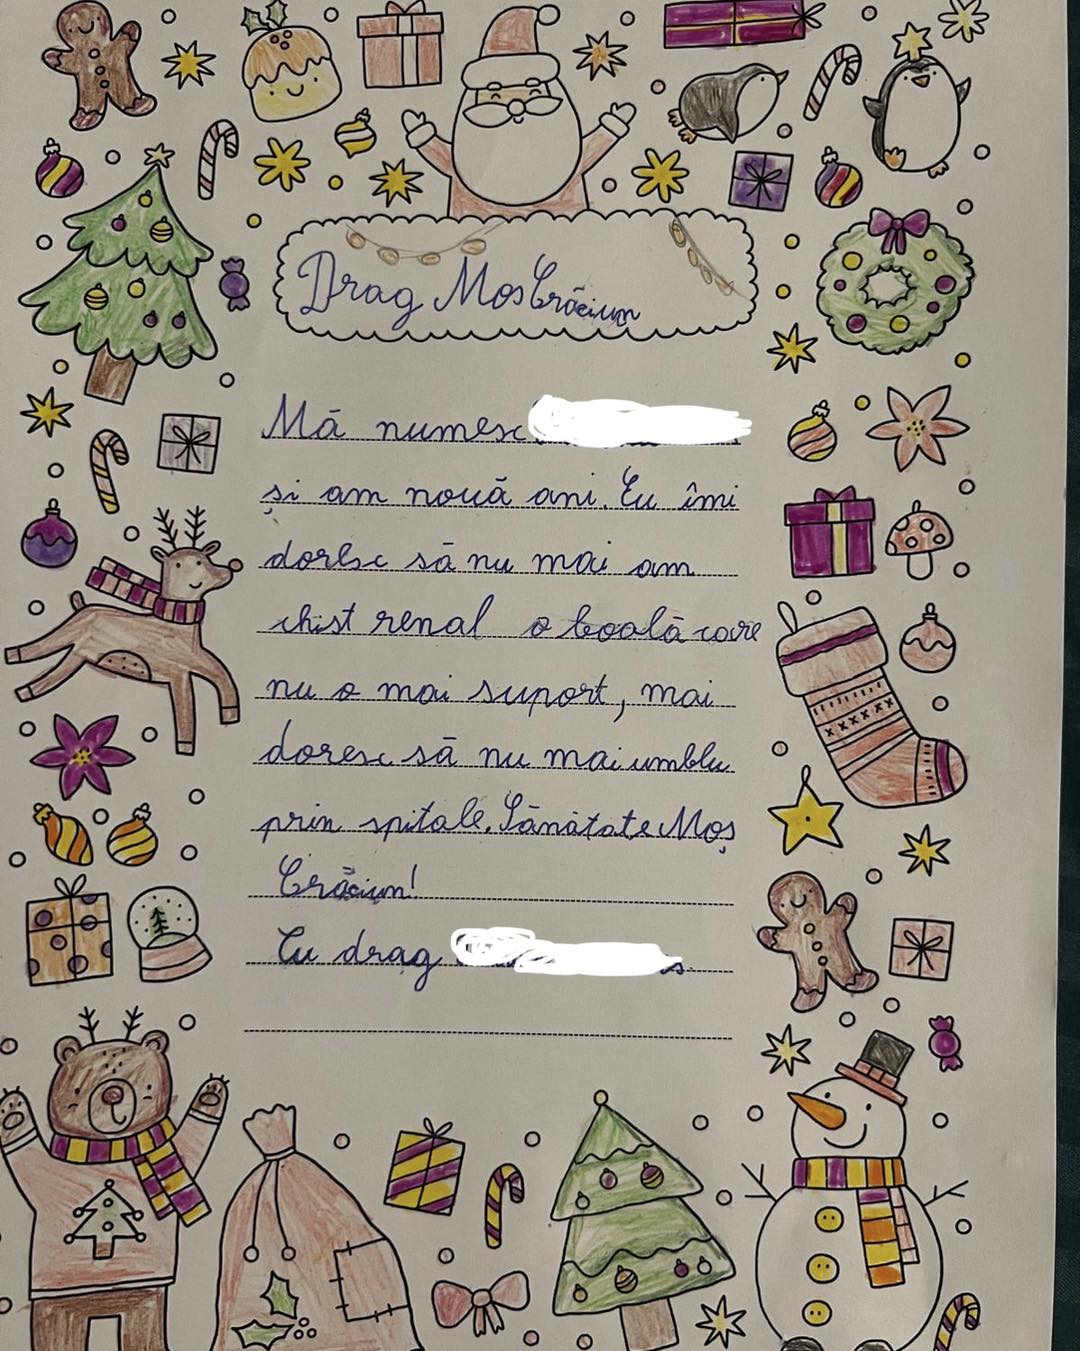 Drag Moș Crăciun
Mă numesc
și am nouă ani. Eu îmi
doresc să nu mai am
chist renal o boală care
nu o mai suport, mai
doresc să nu mai umblu
prin spitale. Sănătate Moș
Crăciun!
Cu drag